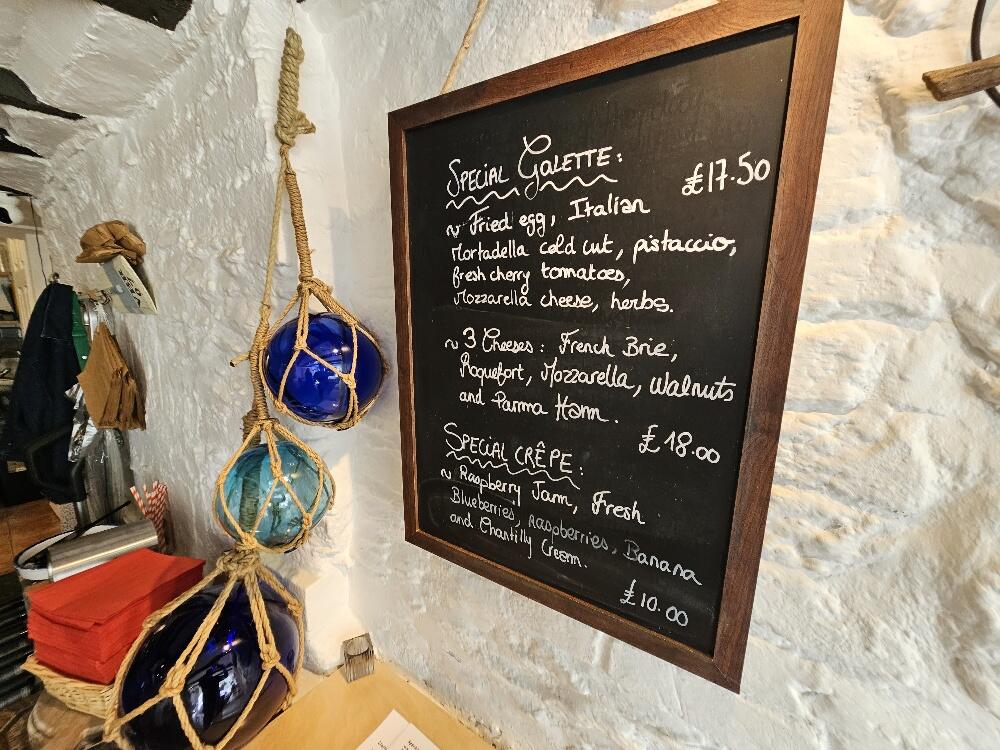 SPECIAL GALETTE:
£17.50
~ Fried egg, Italian
Mortadella cold cut, pistaccio,
fresh cherry tomatoes,
Mozzarella cheese, herbs.
~ 3 Cheeses: French Brie,
Roquefort, Mozzarella, Walnuts
and Parma Ham.
£18.00
SPECIAL CRÊPE:
~ Raspberry Jam, Fresh
Blueberries, raspberries, Banana
and Chantilly Cream.
£10.00